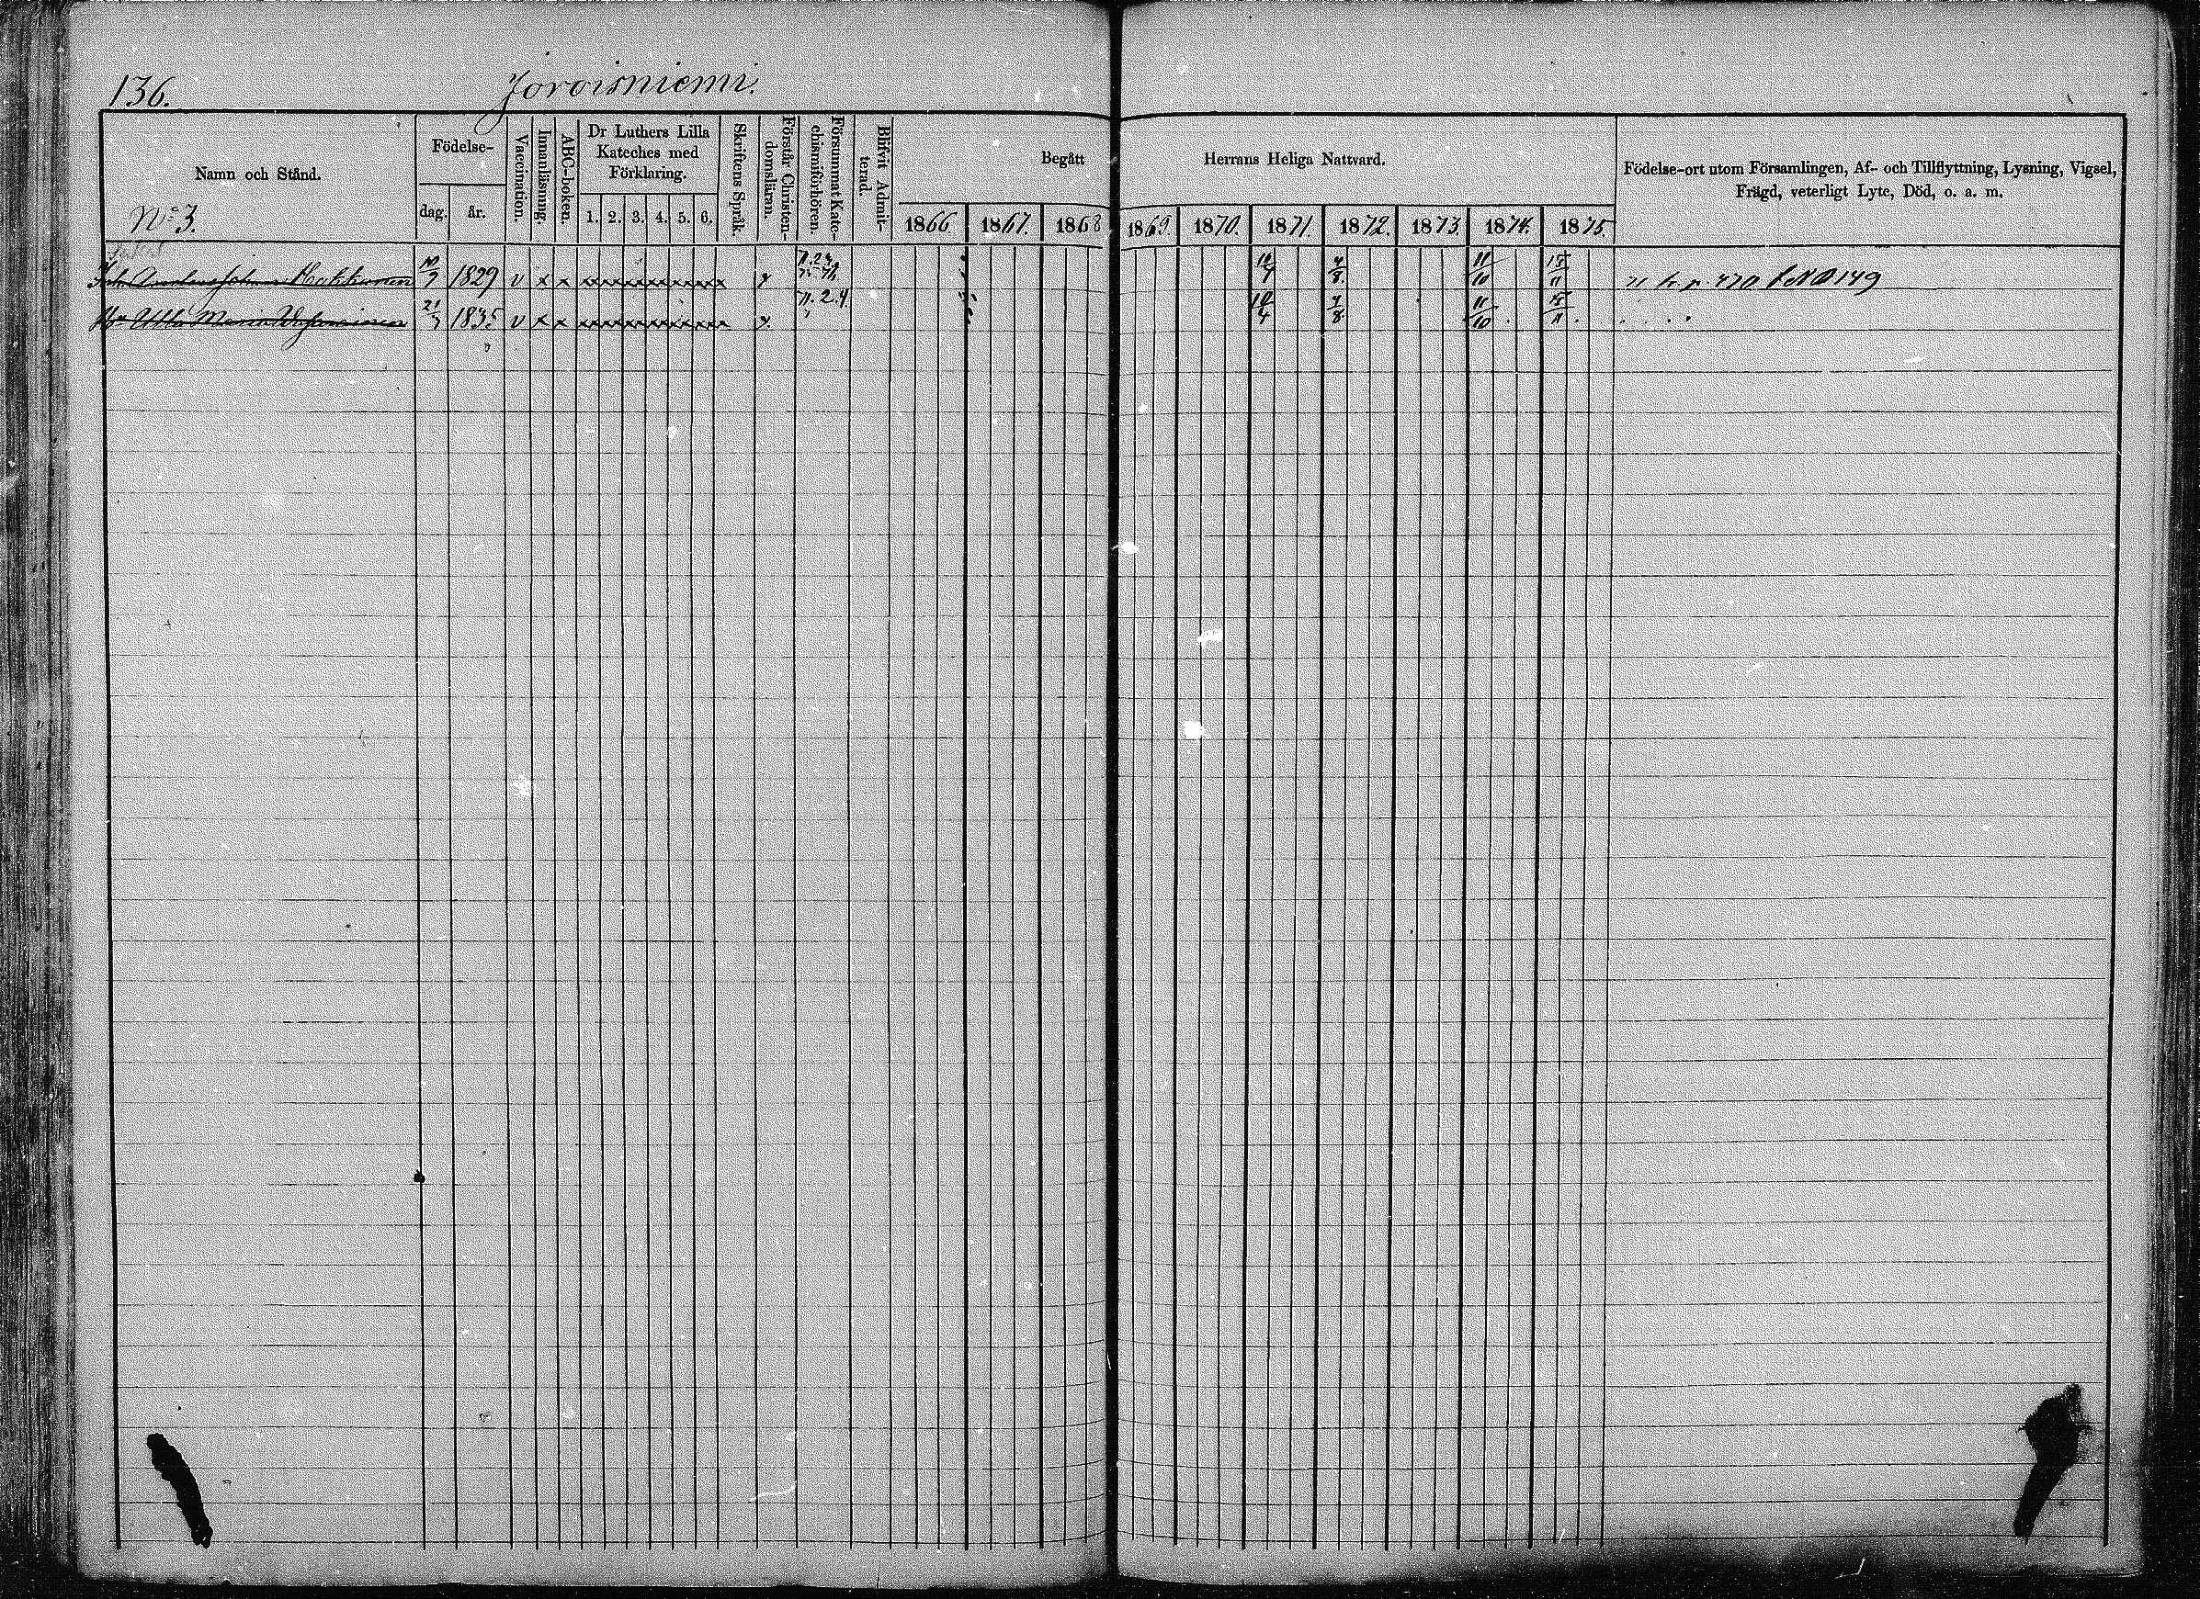 136.
Joroisniemi.
Namn och Stånd.
No 3.
Födelse-
dag.
år.
Vaccination.
Innanläsning.
ABC-boken.
Dr Luthers Lilla
Kateches med
Förklaring.
1. 2. 3. 4. 5. 6.
Skriftens Språk.
Förstår Christen-
domsläran.
Försummat Kate-
chismiförhören.
Blifvit Admit-
terad.
Begått
Herrans Heliga Nattvard.
1866. 1867. 1868 1869. 1870. 1871. 1872. 1873. 1874. 1875.
Födelse-ort utom Församlingen, Af- och Tillflyttning, Lysning, Vigsel,
Frägd, veterligt Lyte, Död, o. a. m.
Johan Makkonen 1829 v x x xxxxxxxxxxxx 7/8 11/10 15/11 149
Hu Ulla Maria 21/7 1835 v x x xxxxxxxxxxxx 7/8 11/10 15/11